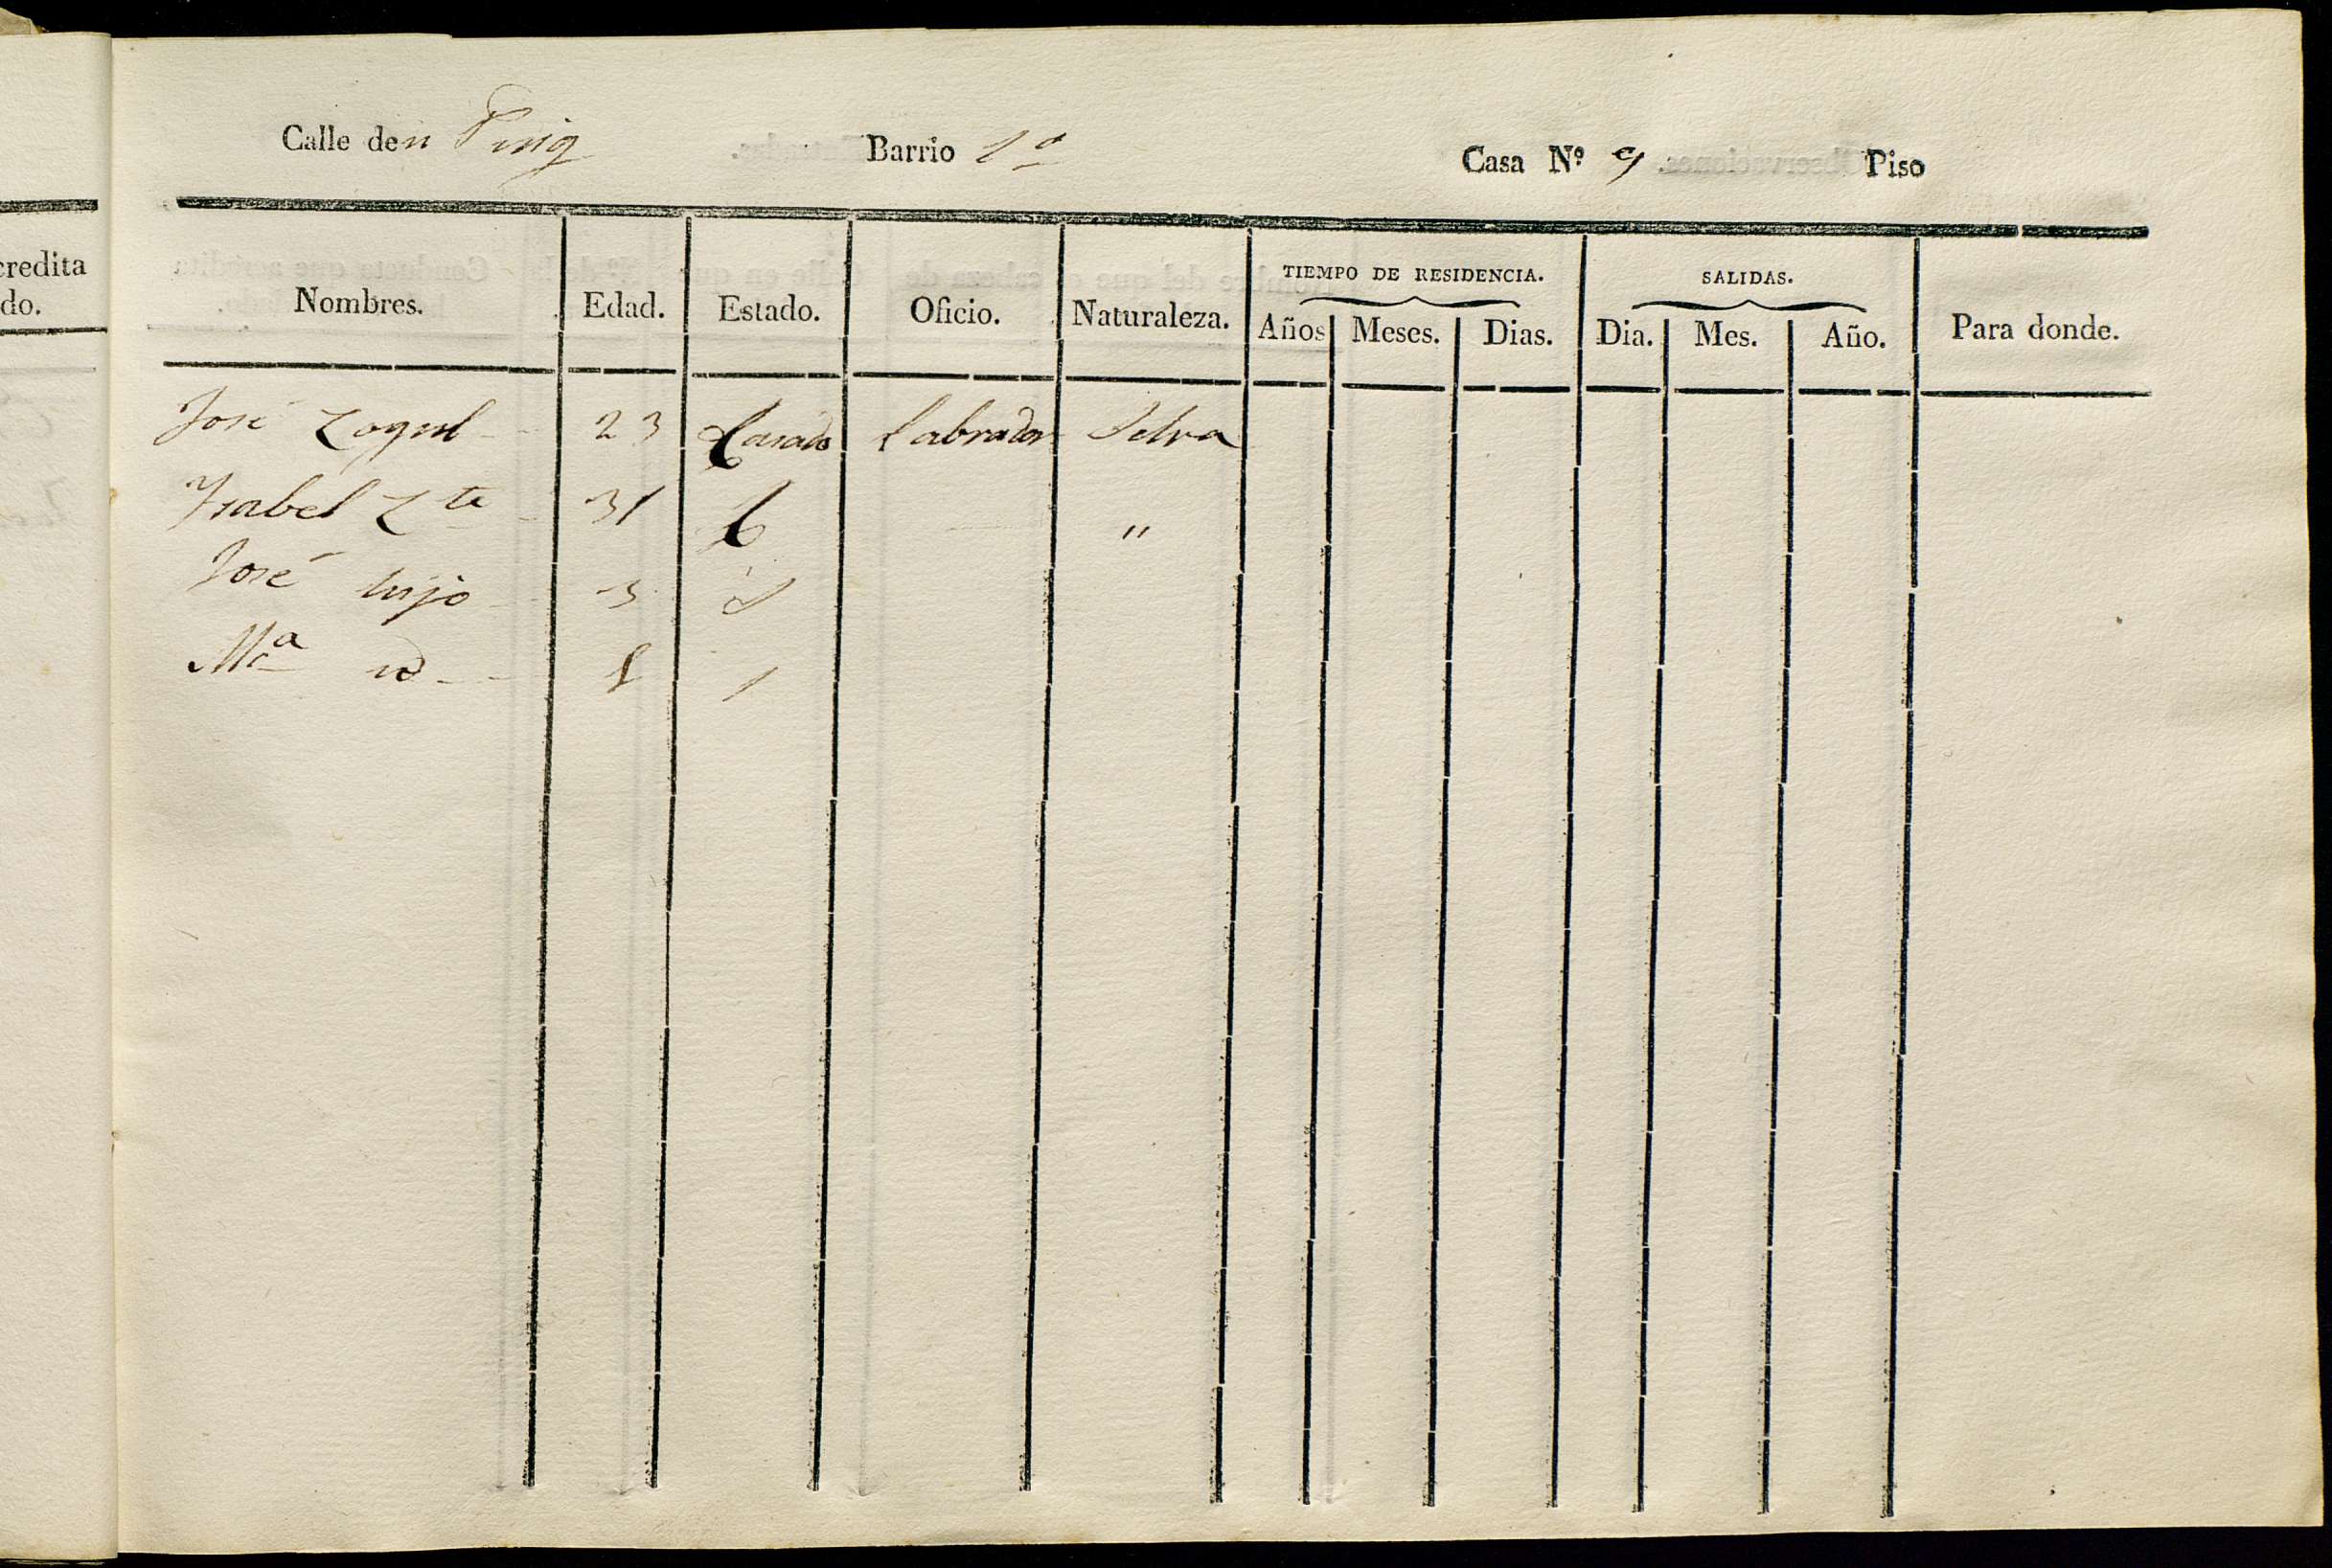 credita
do.
Calle den Puig Barrio 1º Casa Nº 9 Piso
Nombres. Edad. Estado. Oficio. Naturaleza. TIEMPO DE RESIDENCIA. Años Meses. Dias. SALIDAS. Dia. Mes. Año. Para donde.
José 23 Casado Labrador Selva
Ysabel 31 C "
José hijo 3
Mª id 1